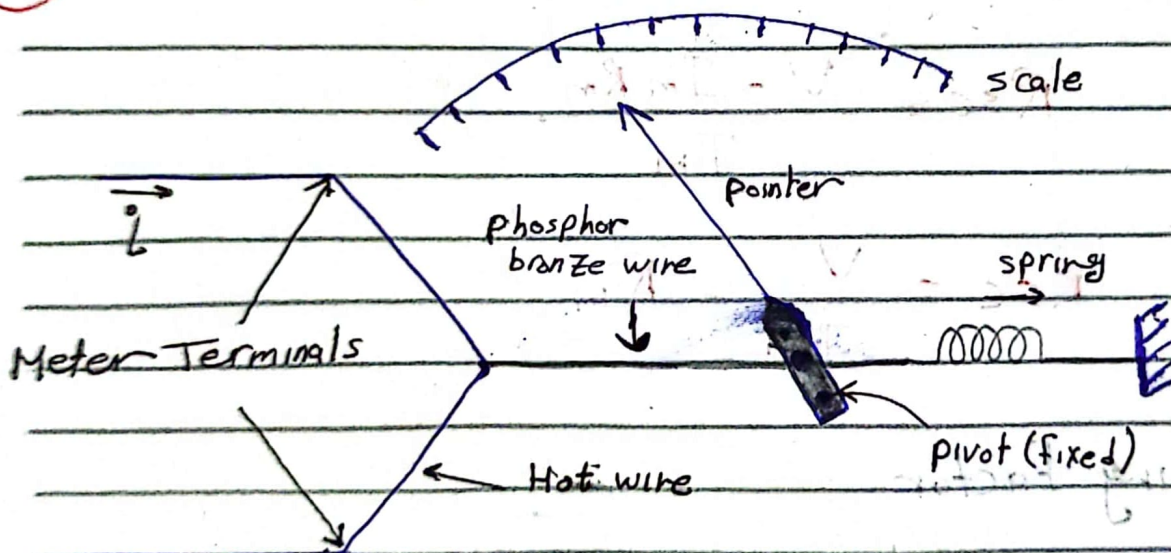 scale
pointer
i
phosphor
bronze wire
spring
Meter Terminals
pivot (fixed)
Hot wire